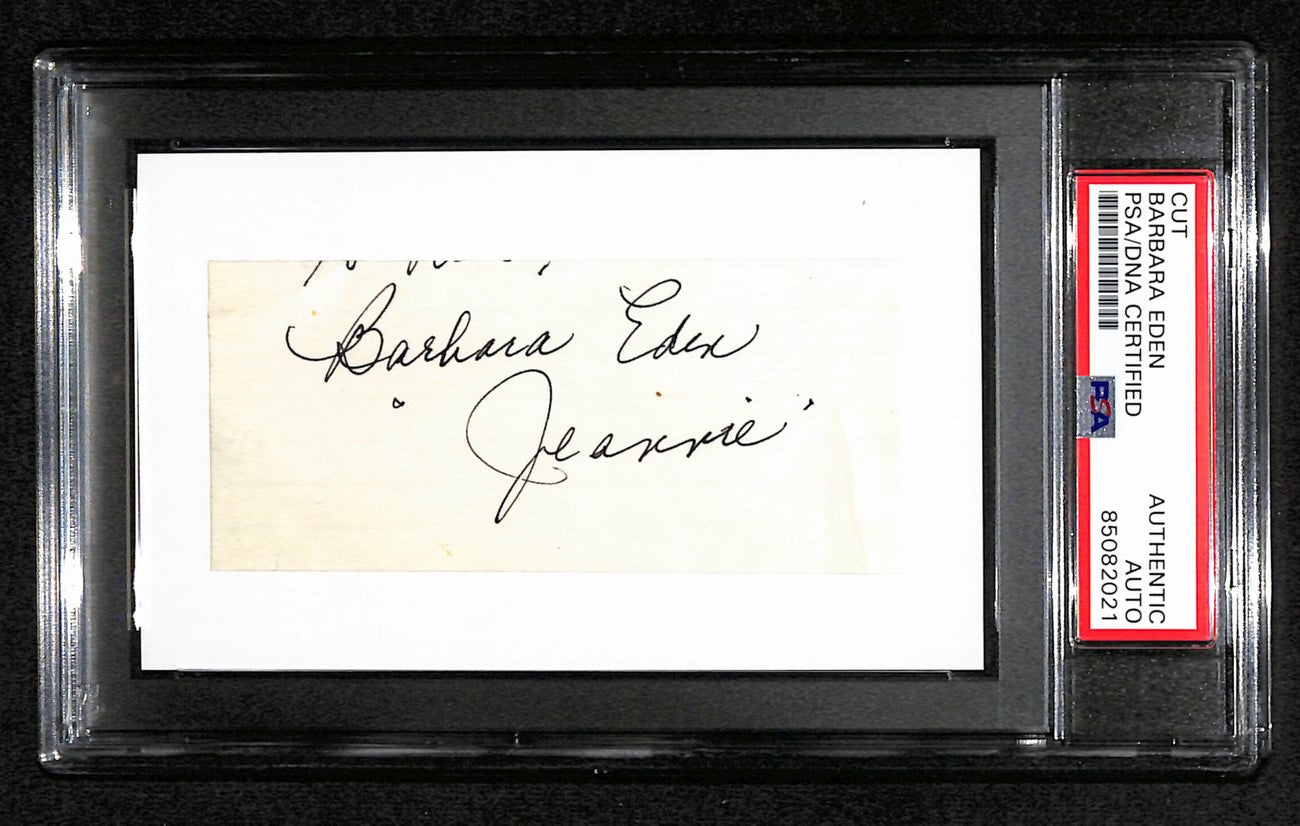 Barbara Eden
"Jeannie"
CUT
BARBARA EDEN
PSA/DNA CERTIFIED
AUTHENTIC
AUTO
85082021
PSA